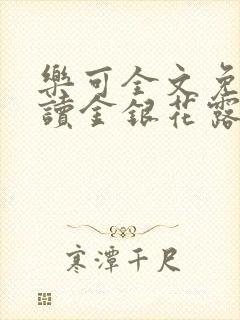 樂可全文免
讀金銀花露
寒潭千尺